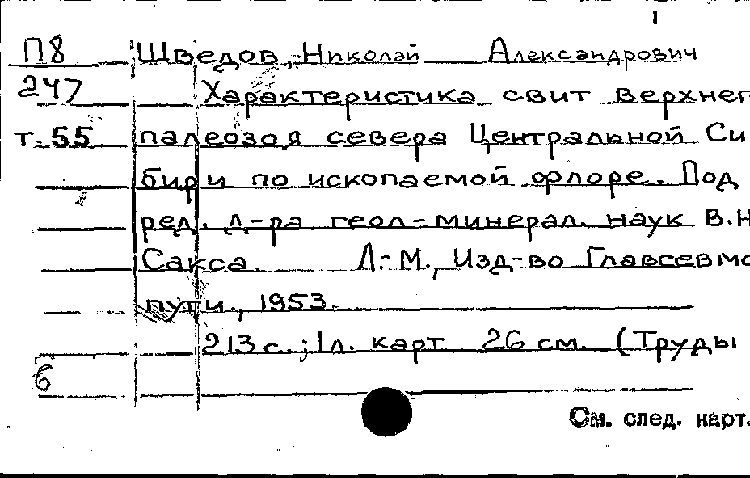 1
П8 Шведов, Николай Александрович
247 Характеристика свит верхнег
т. 55 палеозоя севера Центральной Си
бири по ископаемой флоре. Под
ред. д-ра геол-минерал. наук В.Н
Сакса. Л.-М., Изд-во Главсевмо
пути, 1953.
213 с.; 1 л. карт 26 см. (Труды
б
См. след. карт.